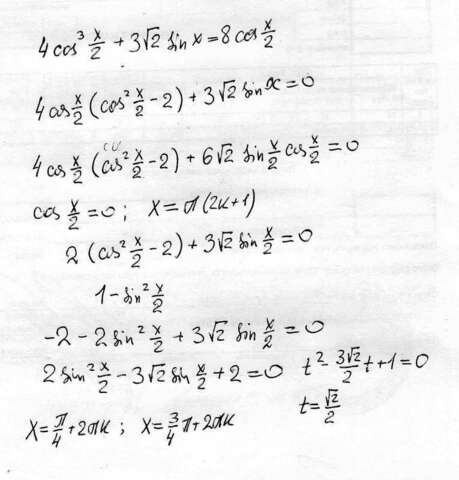 4cos³ x/2 + 3√2 sin x = 8 cos x/2
4cos x/2 (cos² x/2 - 2) + 3√2 sin x = 0
4cos x/2 (cos² x/2 - 2) + 6√2 sin x/2 cos x/2 = 0
cos x/2 = 0 ; x = π(2k+1)
2 (cos² x/2 - 2) + 3√2 sin x/2 = 0
1 - sin² x/2
-2 - 2 sin² x/2 + 3√2 sin x/2 = 0
2 sin² x/2 - 3√2 sin x/2 + 2 = 0   t² - 3√2/2 t + 1 = 0
t = √2/2
x = π/4 + 2πk ; x = 3/4 π + 2πk